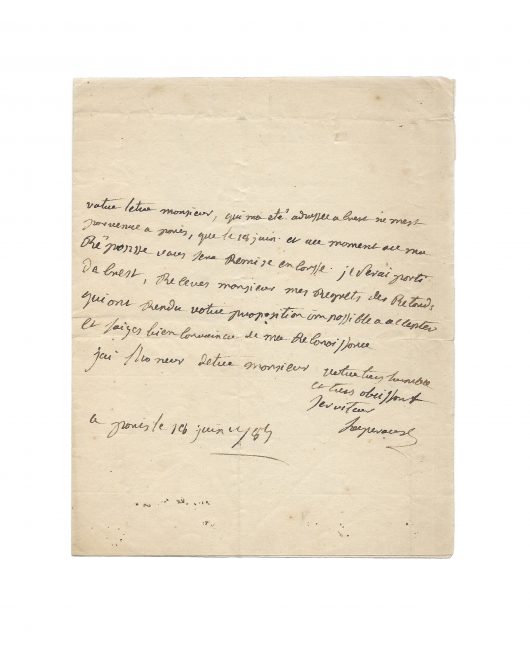 votre lettre monsieur, qui ma eté adressee a brest ne mest
parvenue a paris, que le 18 juin et au moment ou ma
Réponsse vous sera Remise en Corsse je serai parti
de brest, Receves monsieur mes Regrets des Retards
qui ont Rendu votre proposition impossible a accepter
et soiyes bien Convaincu de ma Reconoissance
jai lhoneur detre monsieur votre tres humble
et tres obeissant
serviteur
Laperouse
a paris le 18 juin